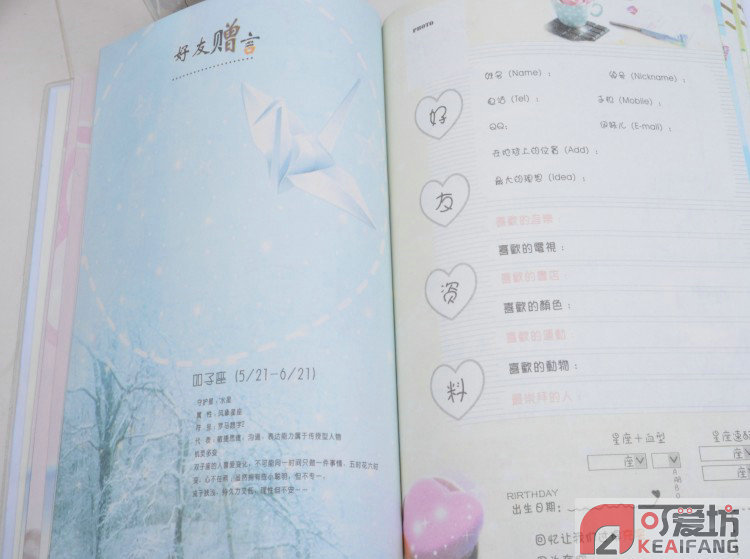 好友赠言
双子座 (5/21-6/21)
守护星：水星
属 性：风象星座
代 表：敏捷思维，沟通，表达能力属于传授型人物
机灵多变
双子座的人喜爱变化，不可能同一时间只做一件事情，五时花六时
变，心不在焉，虽然拥有些小聪明，但不专一，
PHOTO
姓名 (Name)：
(Nickname)：
电话 (Tel)：
手机 (Mobile)：
QQ：
(E-mail)：
在地球上的位置 (Add)：
最大的理想 (Idea)：
好
友
資
料
喜歡的音樂：
喜歡的電視：
喜歡的書店：
喜歡的顏色：
喜歡的運動：
喜歡的動物：
最崇拜的人：
星座+血型
星座速配
座
座
座
A
AB
B
O
BIRTHDAY
出生日期：
可爱坊
KEAIFANG